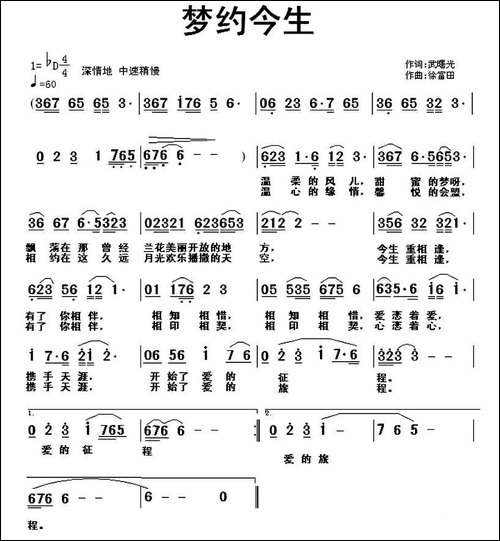 梦约今生
1=♭D 4/4 深情地 中速稍慢
♩=60
作词:武曙光
作曲:徐富田
(367 65 65 3· 367 i76 5 6· 06 23 6·7 65 35 36 65 32 3·
0 2 3 1 765 676 6 - - ) 623 1·6 12 3· 367 6·5653·
温 柔的风 儿,甜 蜜的梦呀,
温 心的缘 情,馨 悦的会盟,
36 67 6·5323 02321 623653 212 2 - - 356 32 331
飘 落在那 曾经 兰花美丽开放的地 方, 今生 重相 逢,
相 约在这 久远 月光欢乐播撒的天 空, 今生 重相 逢,
623 56 12 1· 01 176 23 05 535 675 6 635·6 i6 i·
有了 你相 伴, 相 知 相 惜, 相 知 相 惜,爱恋着 爱,
有了 你相 伴, 相 印 相 契, 相 印 相 契,心恋着 心,
i 7·6 2i 2· 06 56 i 76 0 2 3 i 7·6 323 3 - -
携 手 天 涯, 开 始了 爱 的 征 程。
携 手 天 涯, 开 始了 爱 的 旅 程。
1. 2.
0 2 3 i 765 676 6 - - :‖ 0 2 3 i - 7 6 5 -
爱 的 征 程 爱 的 旅
676 6 - - 6 - - 0
程。